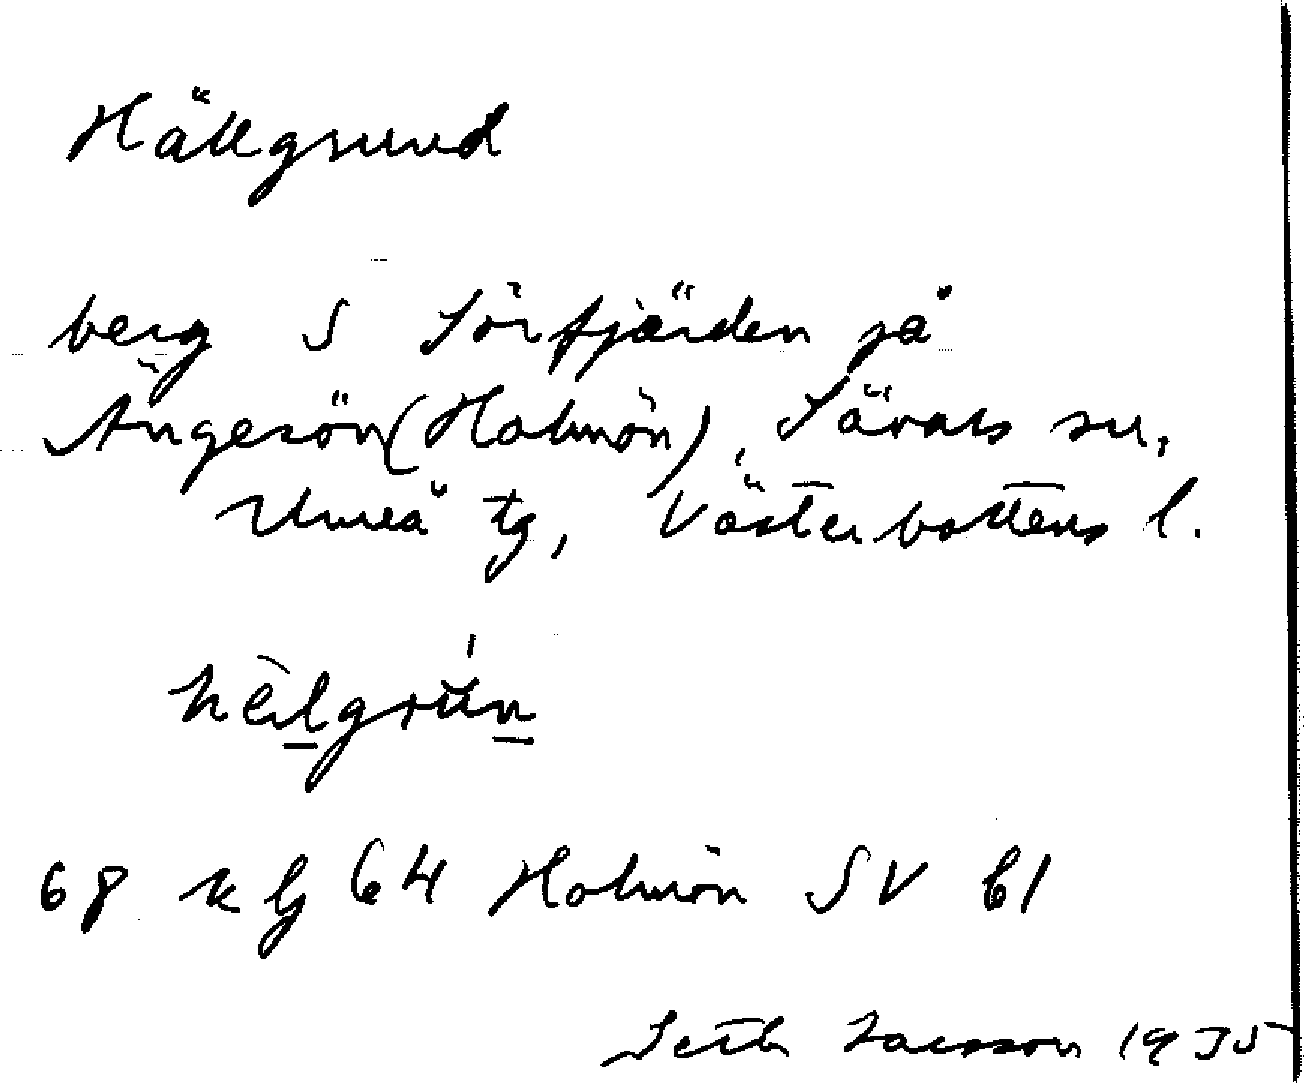 Hällgrund
berg S Sörfjärden på
Ängesön (Holmön), Sävars sn,
Umeå tg, Västerbottens l.
hèlgrún
68 k lj 64 Holmön SV b1
Seth Jansson 1935